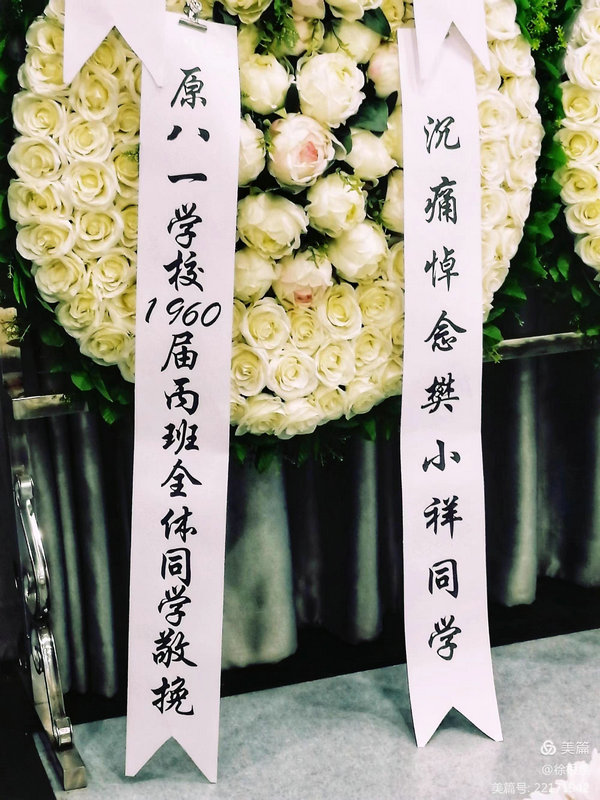 沉痛悼念樊小祥同学
原八一学校1960届丙班全体同学敬挽
美篇